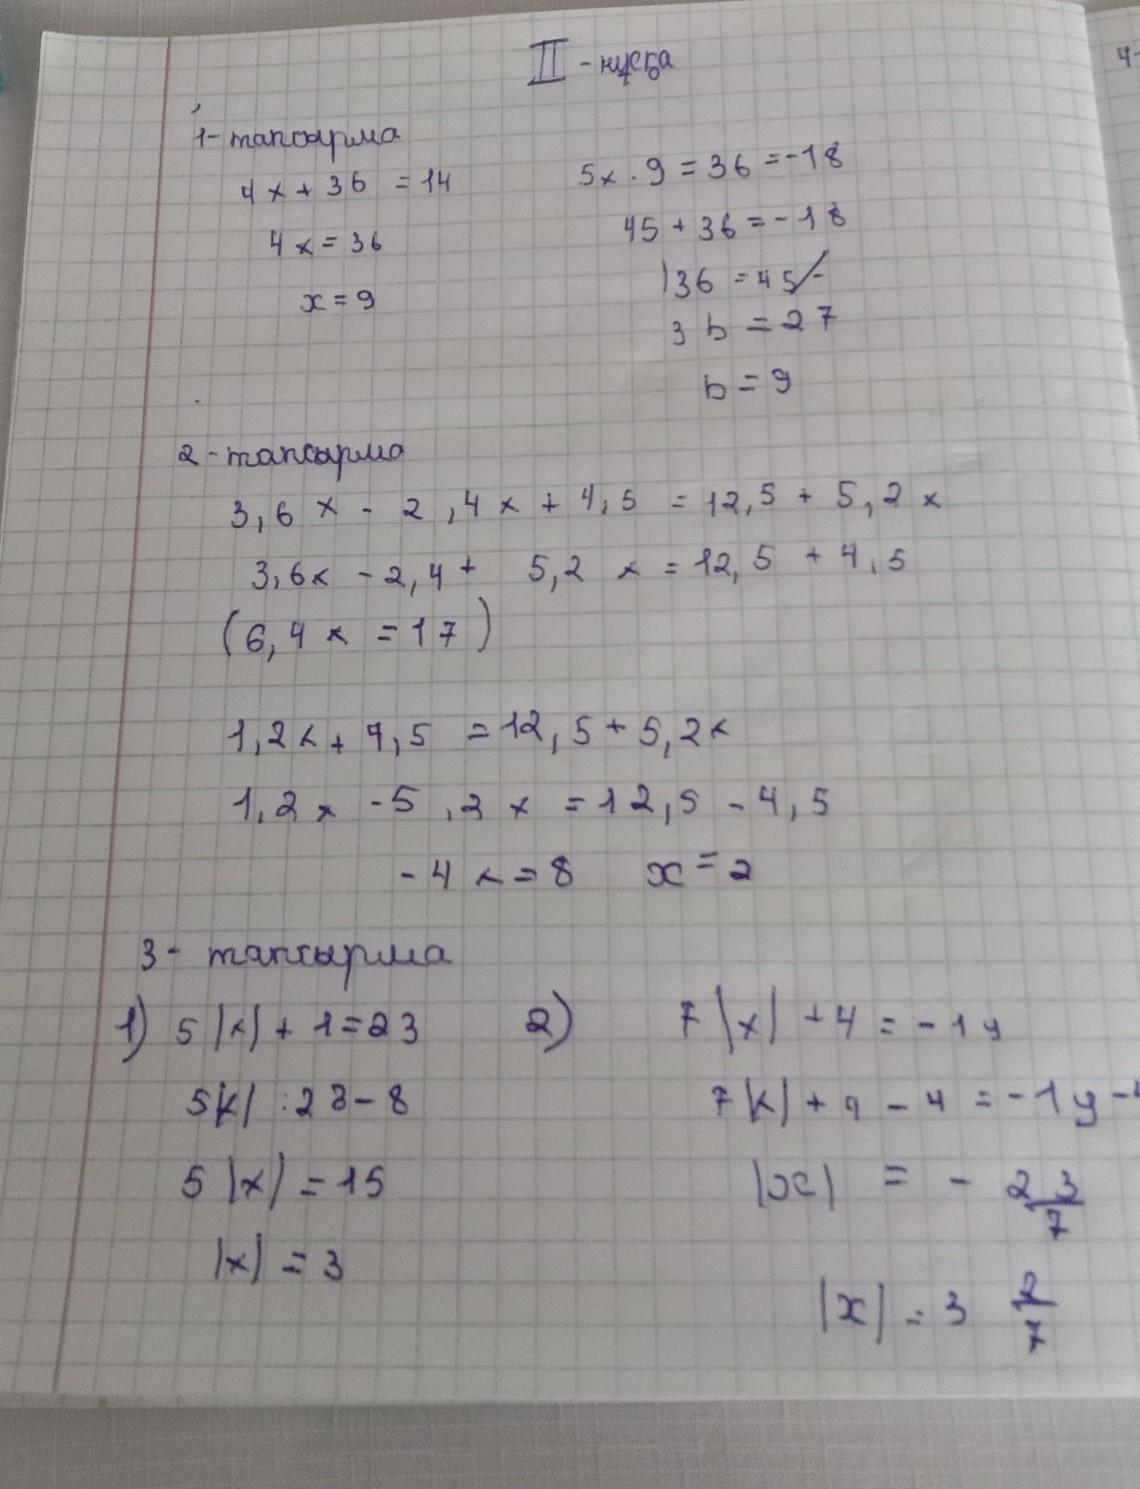 II - нұсқа
1-тапсырма
4x + 36 = 14
4x = 36
x = 9
5x · 9 = 36 = -18
45 + 36 = -18
136 = 45/-
3b = 27
b = 9
2-тапсырма
3,6x - 2,4x + 4,5 = 12,5 + 5,2x
3,6x - 2,4 + 5,2x = 12,5 + 4,5
(6,4x = 17)
1,2x + 4,5 = 12,5 + 5,2x
1,2x - 5,2x = 12,5 - 4,5
-4x = 8 x = 2
3- тапсырма
1) 5|x| + 1 = 23
5|x| : 23 - 8
5|x| = 15
|x| = 3
2) 7|x| + 4 = -19
7|x| + 4 - 4 = -19 -
|x| = - 23/7
|x| = 3 2/7